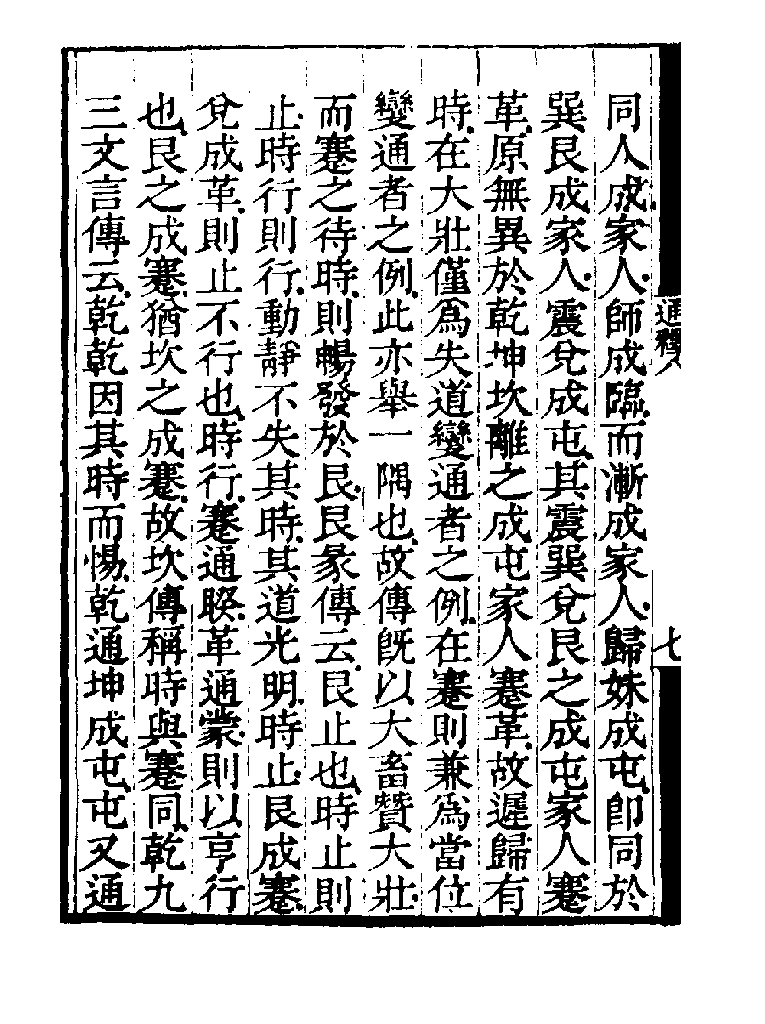 同人成家人師成臨而漸成家人歸妹成屯卽同於
巽艮成家人震兌成屯其震巽兌艮之成屯家人蹇
革原無異於乾坤坎離之成屯家人蹇革故遲歸有
時在大壯僅爲失道變通者之例在蹇則兼爲當位
變通者之例此亦舉一隅也故傳旣以大畜贊大壯
而蹇之待時則暢發於艮艮彖傳云艮止也時止則
止時行則行動靜不失其時其道光明時止艮成蹇
兌成革則止不行也時行蹇通睽革通蒙則以亨行
也艮之成蹇猶坎之成蹇故坎傳稱時與蹇同乾九
三文言傳云乾乾因其時而惕乾通坤成屯屯又通
通釋八
七